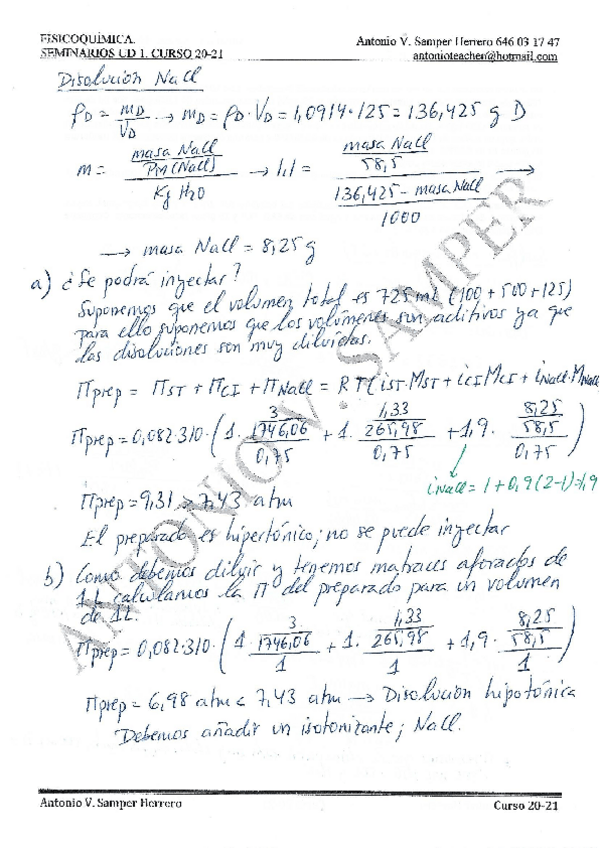 FISICOQUÍMICA.
SEMINARIOS UD 1. CURSO 20-21
Antonio V. Samper Herrero 646 03 17 47
antonioteacher@hotmail.com
Disolución NaCl
ρD = mD/VD → mD = ρD · VD = 1,0914 · 125 = 136,425 g D
m = (masa NaCl / PM(NaCl)) / Kg H2O → 1,1 = (masa NaCl / 58,5) / ((136,425 - masa NaCl) / 1000) →
→ masa NaCl = 8,25 g
a) ¿Se podrá inyectar?
Suponemos que el volumen total es 725 mL (100 + 500 + 125)
para ello suponemos que los volúmenes son aditivos ya que
las disoluciones son muy diluidas.
Πprep = ΠST + ΠCI + ΠNaCl = RT(iST·MST + iCI MCI + iNaCl·MNaCl
Πprep = 0,082·310·(1· (3/1746,06)/0,75 + 1· (1,33/265,98)/0,75 + 1,9· (8,25/58,5)/0,75)
iNaCl = 1 + 0,9(2-1) = 1,9
Πprep = 9,31 > 7,43 atm
El preparado es hipertónico; no se puede inyectar
b) Como debemos diluir y tenemos matraces aforados de
1 L calculamos la Π del preparado para un volumen
de 1L.
Πprep = 0,082·310·(1· (3/1746,06)/1 + 1· (1,33/265,98)/1 + 1,9· (8,25/58,5)/1)
Πprep = 6,98 atm < 7,43 atm → Disolución hipotónica
Debemos añadir un isotonizante; NaCl.
ANTONIO V. SAMPER
Antonio V. Samper Herrero
Curso 20-21